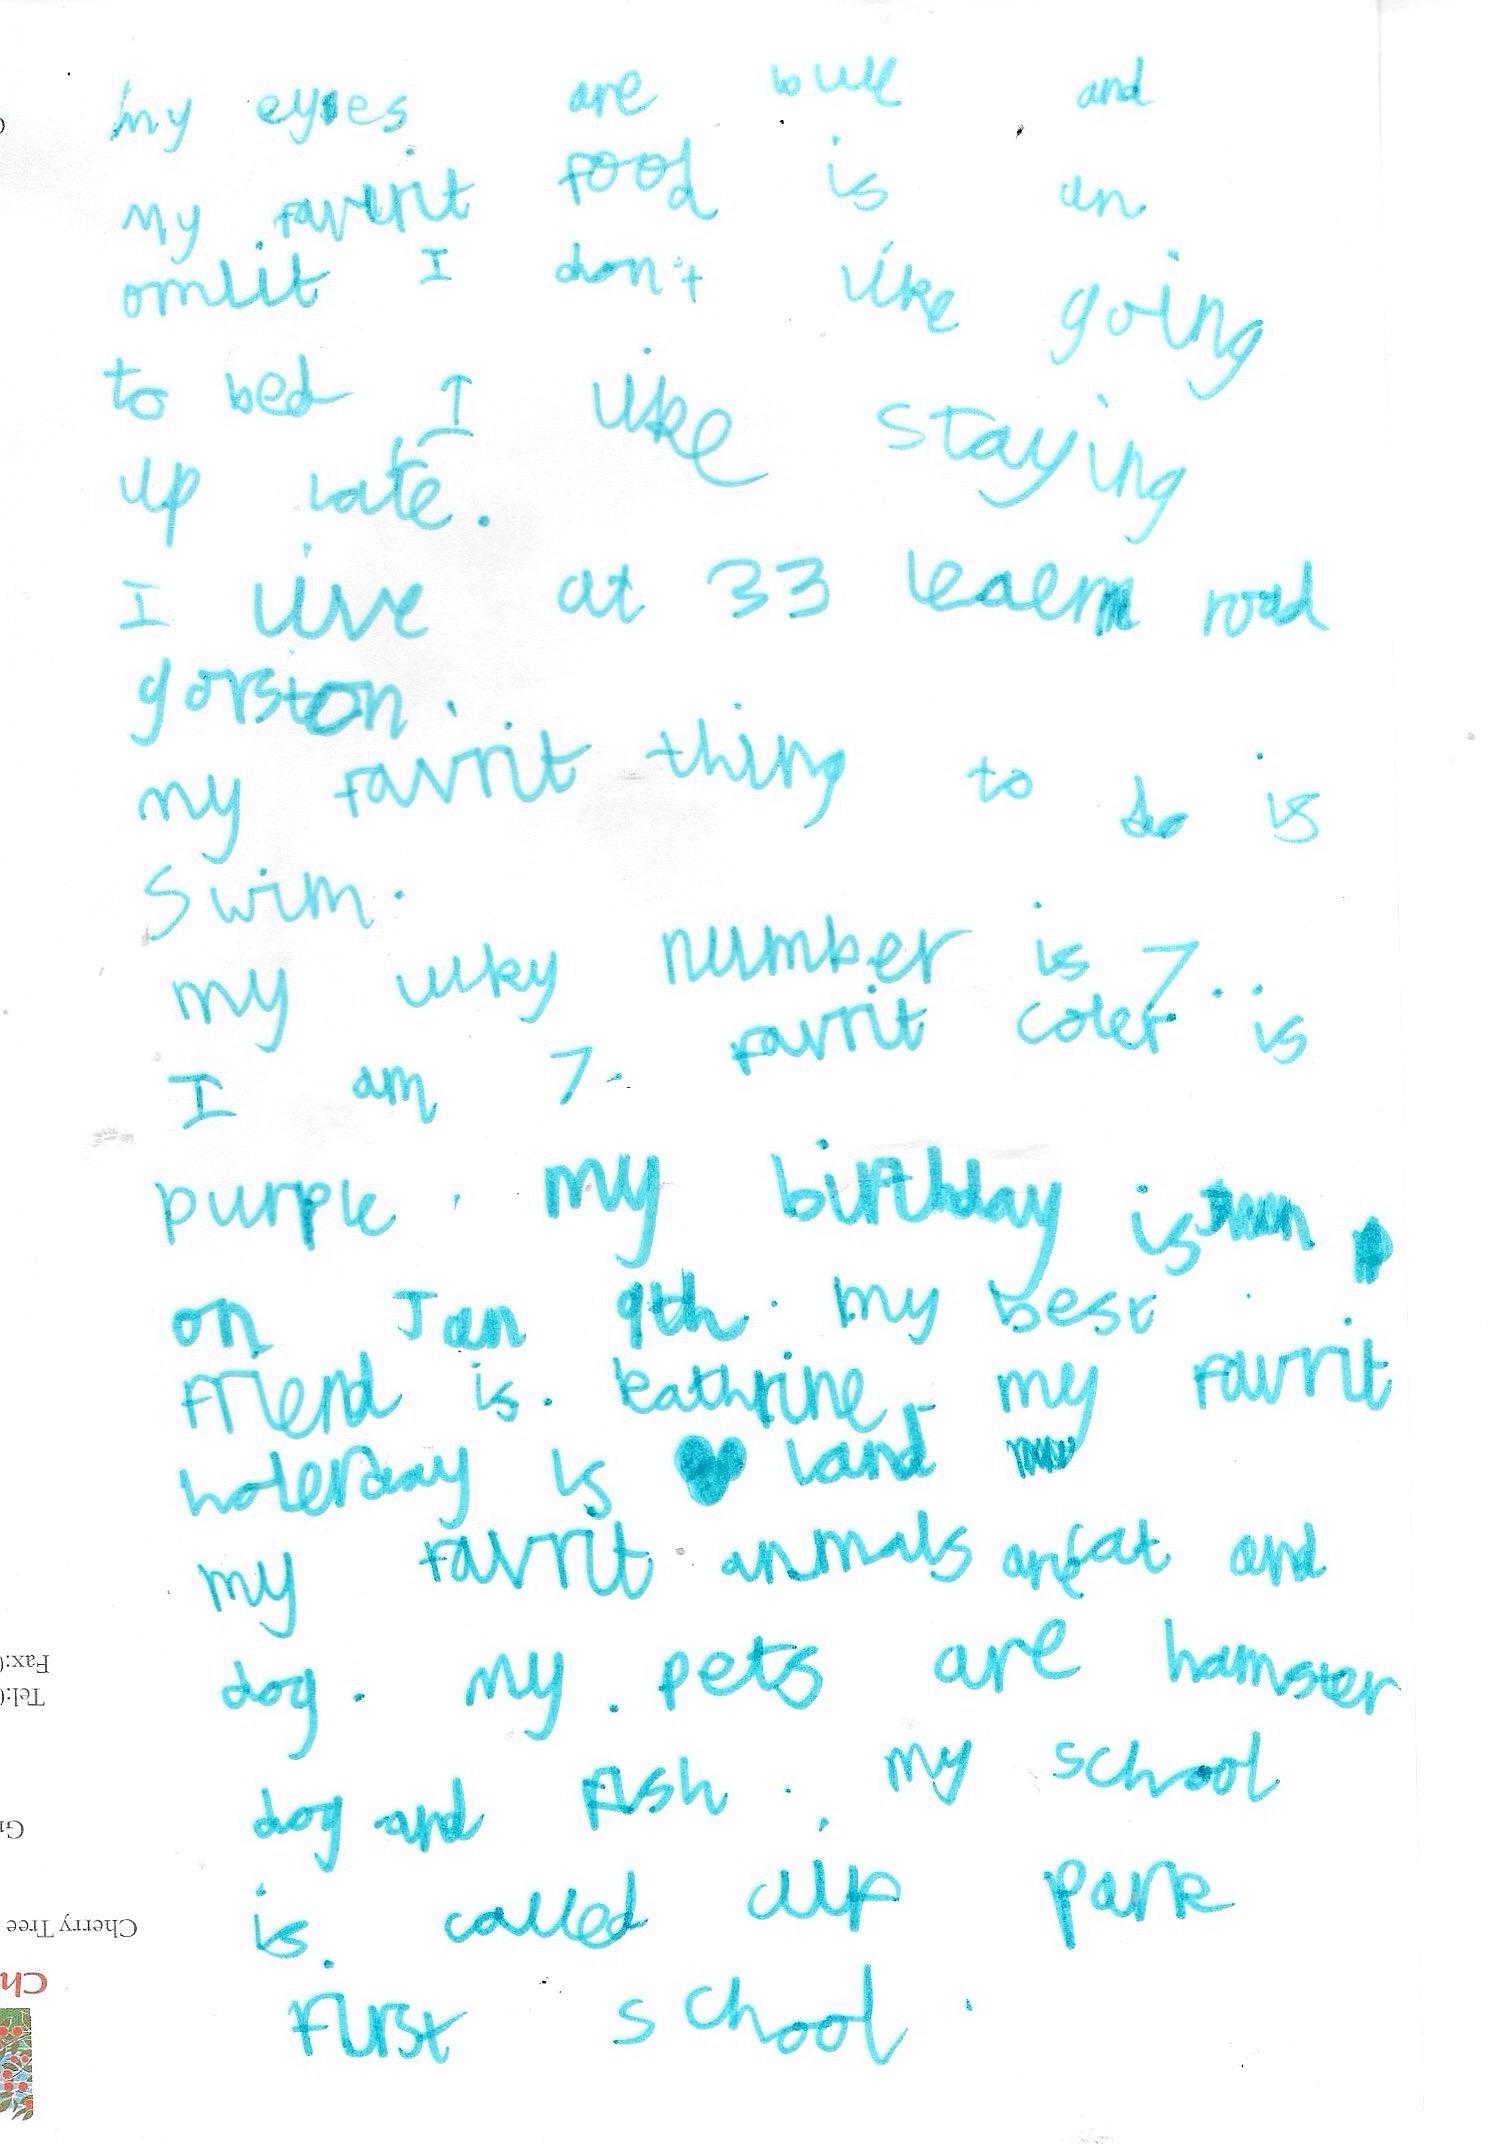 my eyes are bule and
my faverit food is an
omlit I don't like going
to bed I like staying
up late.
I live at 33 road
gorston.
my favrit thing to do is
swim.
my luky number is 7.
I am 7. favrit coler is
purple. my birthday is
on Jan 9th. my best
friend is kathrine. my favrit
holerday is land
my favrit anmals are cat and
dog. my pets are hamster
dog and fish. my school
is called park
first school.
Fax:0
Tel:0
Gr
Cherry Tree
Ch